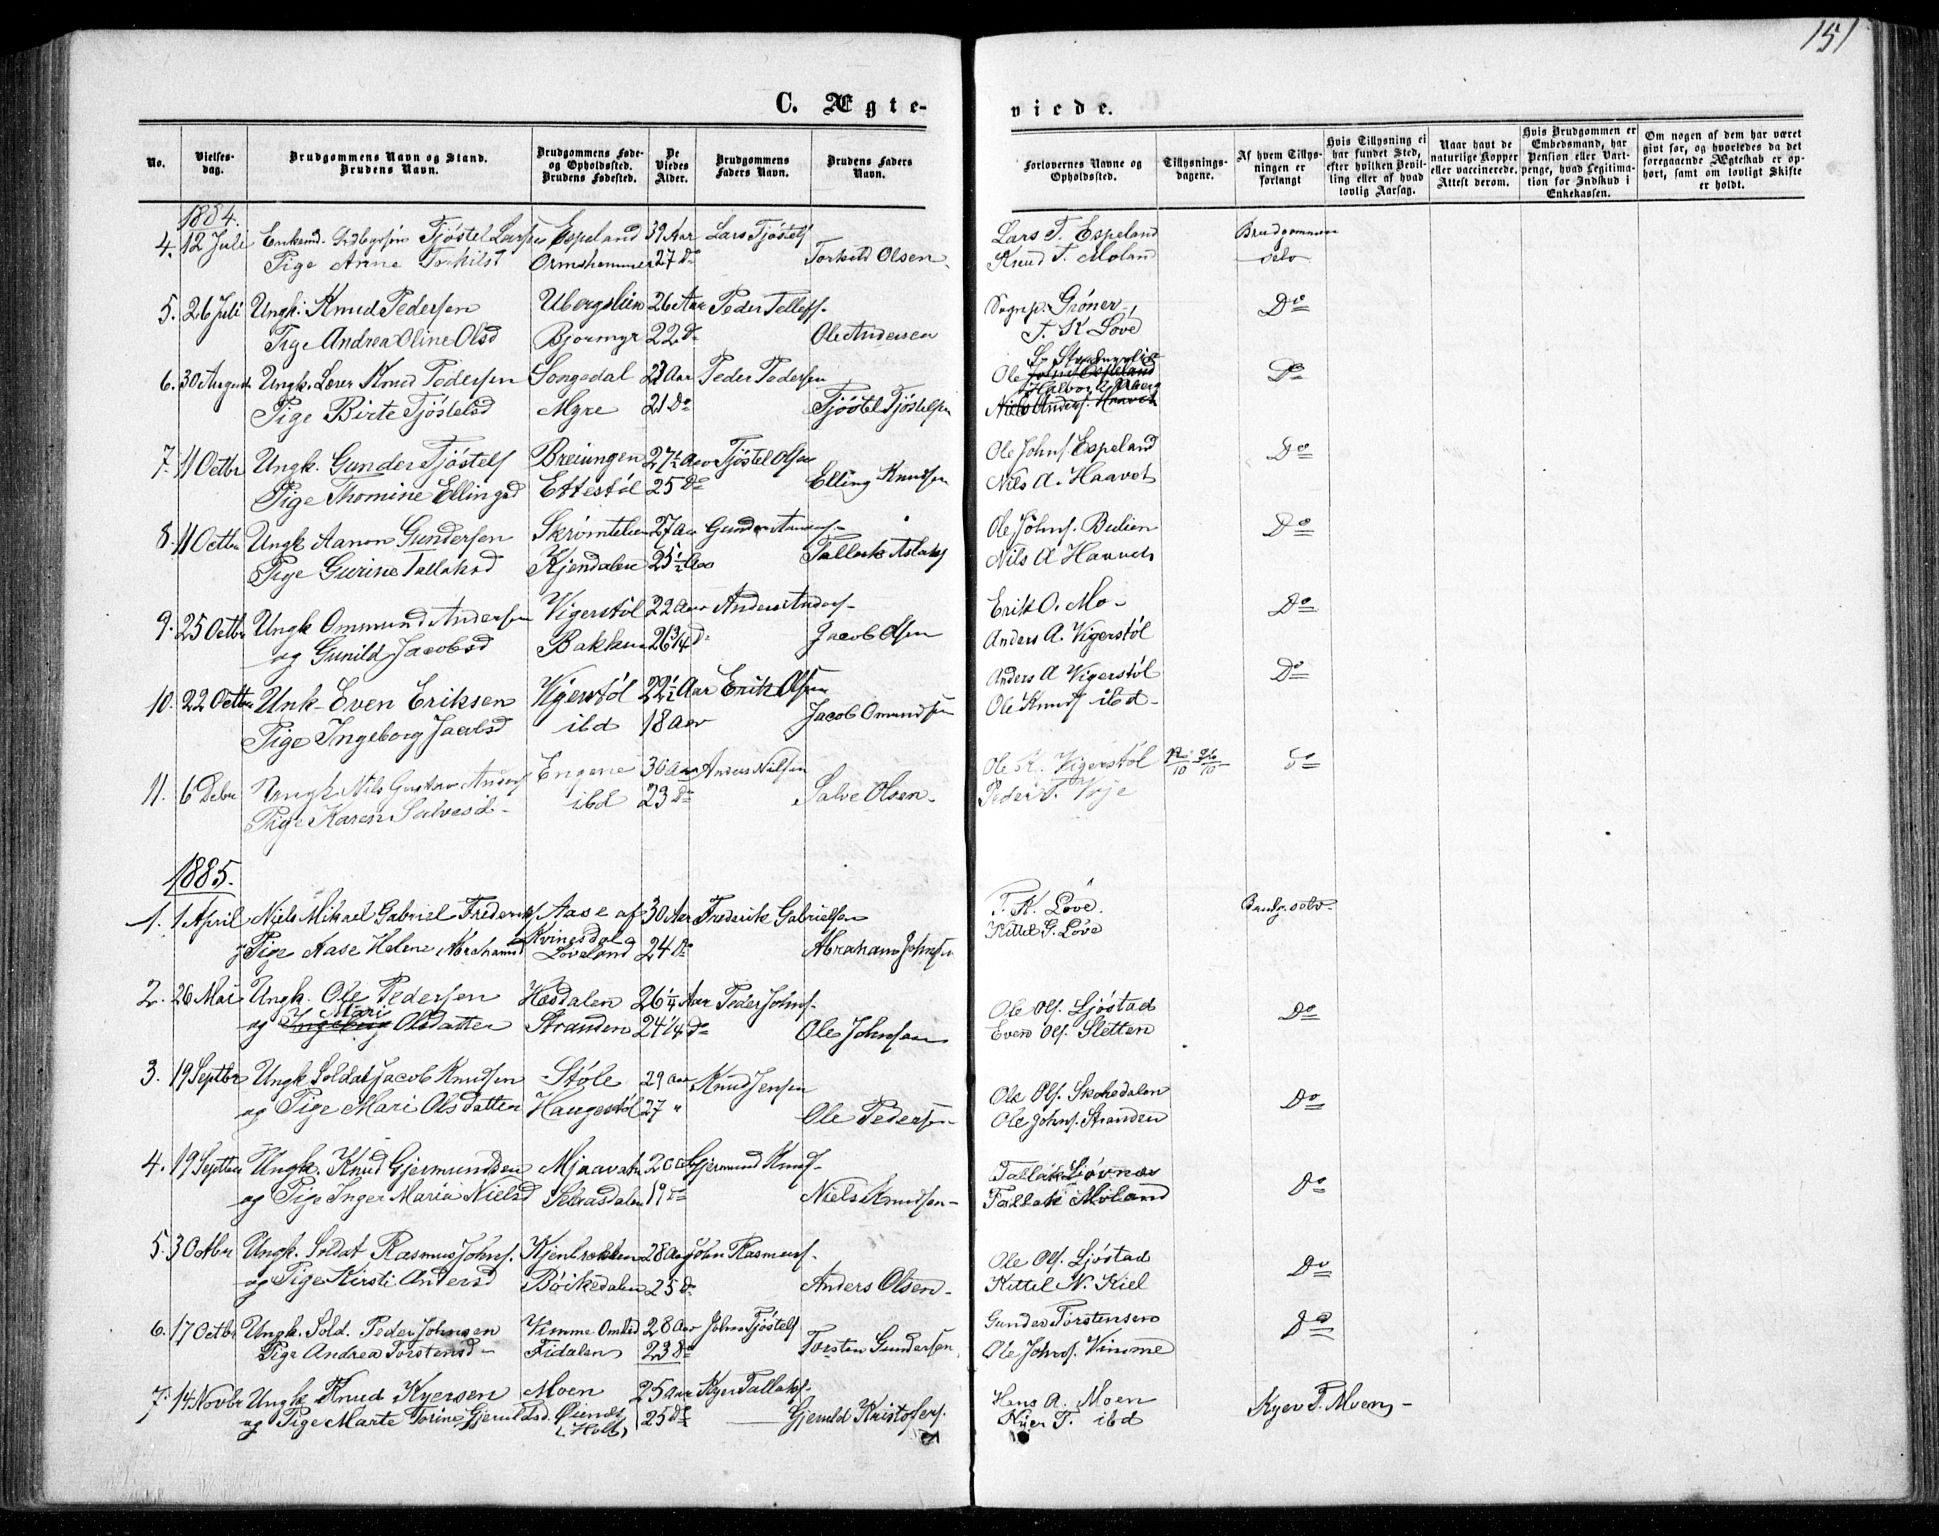 151
C. Ægte-
viede.
No.
Vielses-
dag.
Brudgommens Navn og Stand.
Brudens Navn.
Brudgommens Føde-
og Opholdssted.
Brudens Fødested.
De
Viedes
Alder.
Brudgommens
Faders Navn.
Brudens Faders
Navn.
Forlovernes Navne og
Opholdssted.
Tillysnings-
dagene.
Af hvem Tillys-
ningen er
forlangt
Hvis Tillysning ei
har fundet Sted,
efter hvilken Bevil-
ling eller af hvad
lovlig Aarsag.
Naar havt de
naturlige Kopper
eller vaccinerede.
Attest derom.
Hvis Brudgommen er
Embedsmand, har
Pension eller Vart-
penge, hvad Legitima-
tion for Indskud i
Enkekassen.
Om nogen af dem har været
givt før, og hvorledes da det
foregaaende Ægteskab er op-
hørt, samt om lovligt Skifte
er holdt.
1884.
4. 12 Juli Enkemd. Tjöstel Larsen Espeland 39 Aar Lars Tjöstels Lars T. Espeland Brudgommen
Pige Anne Torkilsd 27 Do Torkild Olsen Knud T. Moland selv
5. 26 Juli Ungk: Knud Pedersen Ubergslien 26 Aar Peder Tellefs. Sognp. Gröner, Do
Pige Andrea Oline Olsd Bjormyr 22 Do Ole Andersen T. K Löve
6. 30 August Ungk. Lærer Knud Pedersen Songedal 23 Aar Peder Pedersen Ole John Espeland Do
Pige Birte Tjöstelsd Myre 21 Do Tjöstel Tjöstelsen Niels Anders. Haavet
7. 11 Octbr Ungk. Gunder Tjöstels Breiungen 27½ Aar Tjöstel Olsen Ole Johns. Espeland Do
Pige Thomine Ellingsd Ettestöl 25 Do Elling Knudsen Nils A. Haavet
8. 11 Octbr Ungk Aanon Gundersen 27 Aar Gunder Ole Johns. Bulien Do
Pige Gurine Tallaksd Kjendalen 25½ Aar Tallak Aslaks Nils A Haavet
9. 25 Octbr Ungk Ommund Andersen Vigerstöl 22 Aar Anders Anders. Erik O. Mo. Do
og Gunild Jacobsd Bakken 26 3/4 Do Jacob Olsen Anders A. Vigerstöl
10. 22 Octbr Unk- Even Eriksen Vigerstöl 22½ Aar Erik Olsen Anders A Vigerstöl Do
Pige Ingeborg Jacobsd ibd 18 Aar Jacob Omundsen Ole Knuds ibd.
11. 6 Debr Ungk Nils Gustav Anders Engene 30 Aar Anders Nilsen Ole K. Vigerstöl /10 26/10 Do
Pige Karen Salvesd. ibd 23 Do Salve Olsen. Peder T. Veje
1885.
1. 1 April Niels Mikael Gabriel Frederiks Aase af 30 Aar Frederik Gabrielsen T. K. Löve. Brudg. selv.
Kvinesdal
og Pige Aase Helene Abrahamsd Löveland 24 Do Abraham Johnsen Kittel G. Löve
2. 26 Mai Ungk. Ole Pedersen Hesdalen 26 1/4 Aar Peder Johns. Ole Ols. Ljöstad Do
Mari
og Ingeborg Olsdatter Stranden 24 1/4 Do Ole Johnsen Even Ols. Sletten
3. 19 Septbr Ungk Soldat Jacob Knudsen Stöle 29 Aar Knud Jensen Ole Ols. Skohedalen Do
og Pige Mari Olsdatter Haugestöl 27 " Ole Pedersen Ole Johns. Stranden
4. 19 Septbr Ungk. Knud Gjermundsen Mjaavatn 20 Aar Gjermund Knuds. Tallak Ljövnes Do
og Pige Inger Maria Nielsd Selaasdalen 19 Do Niels Knudsen. Tallak Moland
5. 3 Octbr Ungk. Soldat Rasmus Johns. 28 Aar John Rasmuss. Ole Ols. Ljöstad Do
og Pige Kirsti Andersd Böikedalen 25 Do Anders Olsen. Kittil N. Kiel
6. 17 Octbr Ungk. Sold. Peder Johnsen Vimme Omlid 28 Aar John Tjöstels Gunder Torstensen Do
Pige Andrea Torstensd. Fidalen 23 Do Torsten Gundersen Ole Johns. Vimme
7. 14 Novbr Ungk Knud Kyersen Moen 25 Aar Kyer Tallaks. Hans A. Moen Kyer T. Moen
og Pige Marte Torine Gjeruldsd. Öienes 25 Do Gjeruld Kristofers. Kyer T. ibd
(Holt)